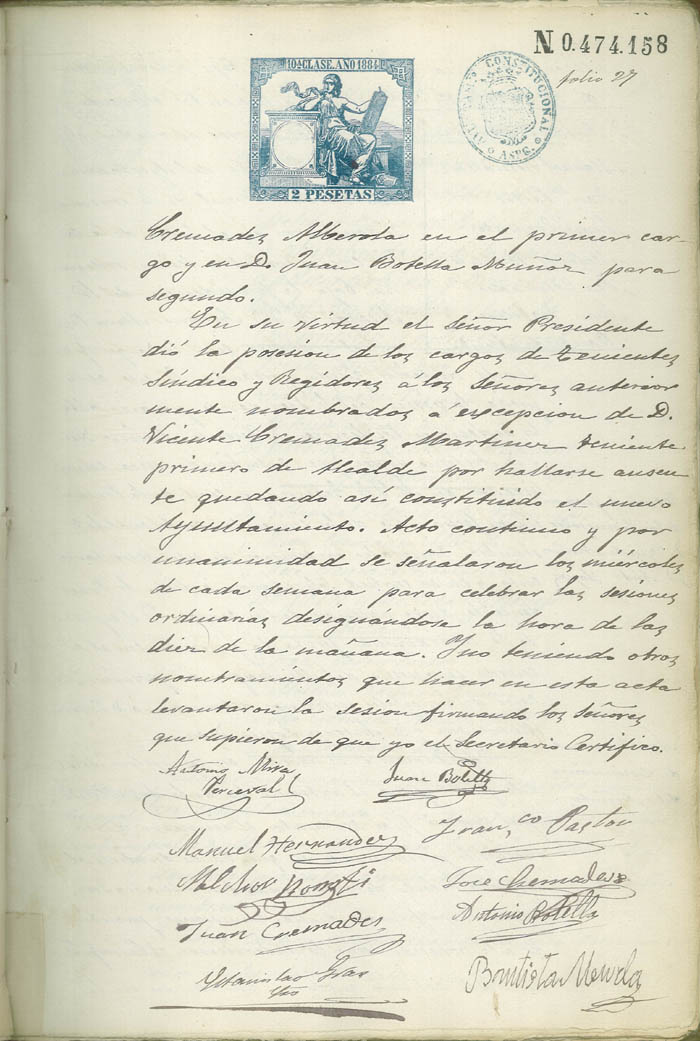 N 0.474.158
folio 27
10ª CLASE. AÑO 1884
CONSTITUCIONAL
ASPE.
2 PESETAS
Cremades Alberola en el primer car-
go y en D. Juan Botella Muñoz para
segundo.
En su virtud el señor Presidente
dió la posesion de los cargos de tenientes
síndico y Regidores á los señores anterior
mente nombrados á escepcion de D.
Vicente Cremades Martinez teniente
primero de Alcalde por hallarse ausen
te quedando así constituido el nuevo
Ayuntamiento. Acto continuo y por
unanimidad se señalaron los miércoles
de cada semana para celebrar las sesiones
ordinarias designándose la hora de las
diez de la mañana. Y no teniendo otros
nombramientos que hacer en esta acta
levantaron la sesion firmando los señores
que supieron de que yo el Secretario Certifico.
Antonio Mira Juan Botella
Perceval
Manuel Hernandez Fran,co Pastor
Melchor José Cremades
Juan Cremades Antonio Botella
Estanislao
Srio
Bautista